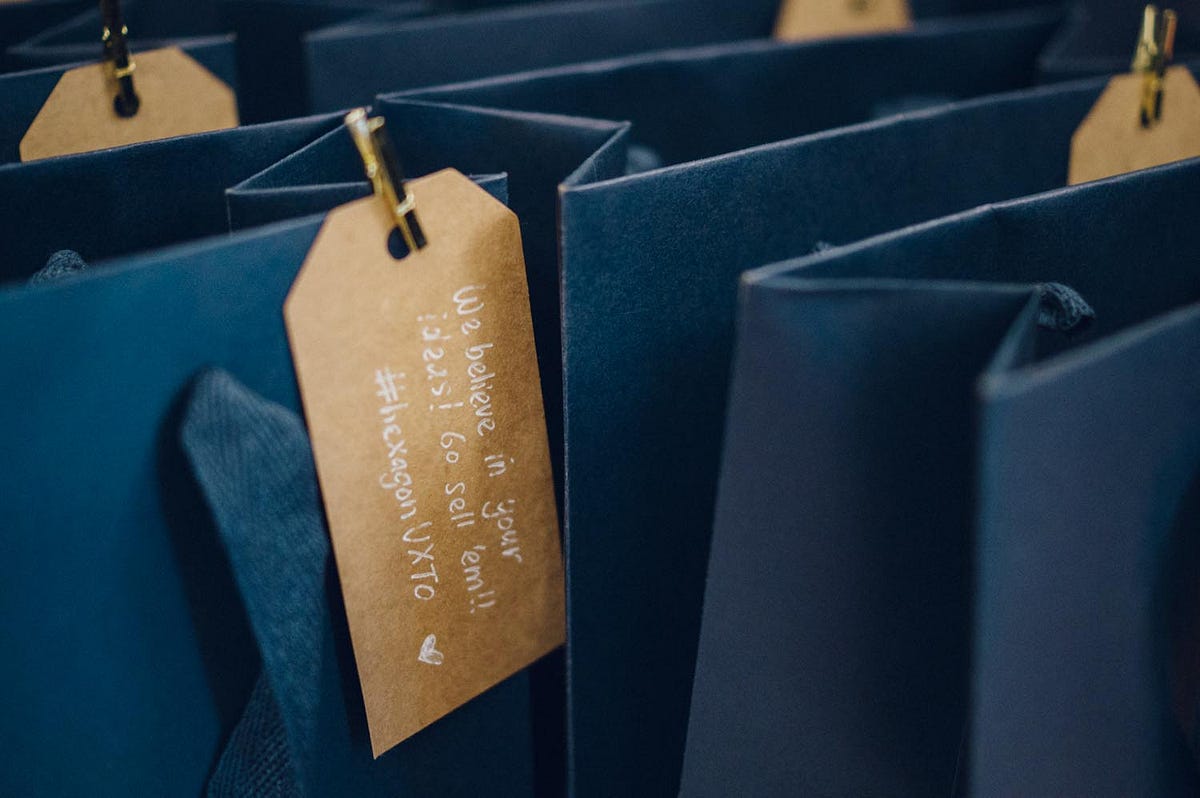 We believe in your
ideas! Go sell 'em!!
#hexagonUXTO